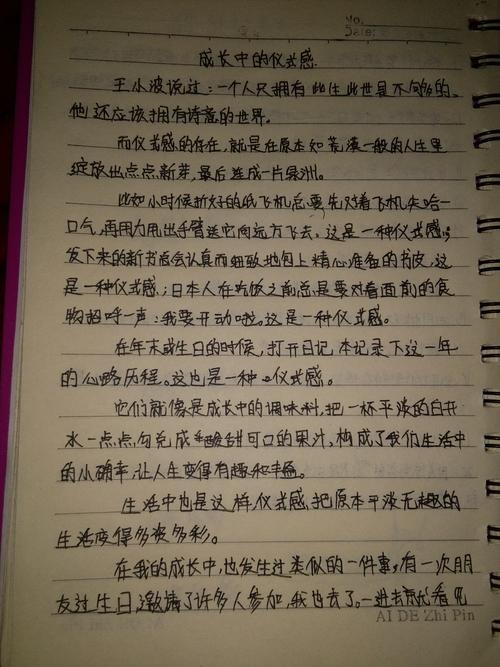 No.
Date:
成长中的仪式感.
王小波说过:一个人只拥有此生此世是不够的,
他还应该拥有诗意的世界。
而仪式感的存在,就是在原本如荒漠一般的人生里
绽放出点点新芽,最后连成一片绿洲。
比如小时候折好的纸飞机总要先对着飞机尖哈一
口气,再用力甩出手臂送它向远方飞去。这是一种仪式感;
发下来的新书总会认真而细致地包上精心准备的书皮,这
是一种仪式感;日本人在吃饭之前总是要对着面前的食
物招呼一声:我要开动啦。这是一种仪式感。
在年末或生日的时候,打开日记本记录下这一年
的心路历程。这也是一种仪式感。
它们就像是成长中的调味料,把一杯平淡的白开
水一点点勾兑成酸甜可口的果汁,构成了我们生活中
的小确幸,让人生变得有趣和丰盈。
生活中也是这样,仪式感,把原本平淡无趣的
生活变得多姿多彩。
在我的成长中,也发生过类似的一件事,有一次朋
友过生日,邀请了许多人参加,我也去了。一进去就看见
AI DE Zhi Pin